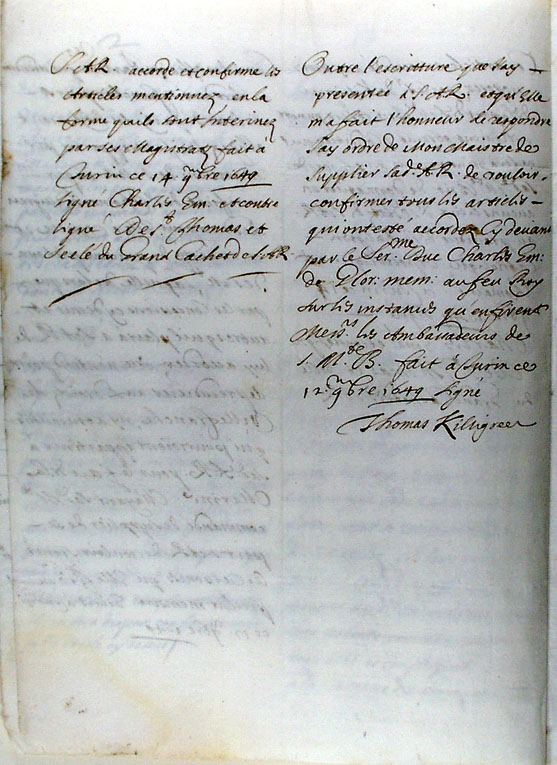 S.A.R. accorde et confirme les
articles mentionnez en la
forme quils sont Interinez
par ses Magistratz fait à
Turin ce 14 9bre 1649
signé Charles Em: et contre
signé De St Thomas et
scelé du grand Cachet de S.A.R.
Outre l'escritture que Jay
presentée à S.A.R. et qu'Elle
m'a fait l'honneur de respondre
Jay ordre de Mon Maistre de
supplier sad. A.R. de vouloir
confirmer tous les articles
qui ont esté accordez Cy devant
par le Ser.me Duc Charles Em:
de Glor: mem: au feu Roy
sur les instances qu'en firent
Mess.rs les Ambassadeurs de
S. M.té B. fait à Turin ce
12 9bre 1649 signé
Thomas Killigree